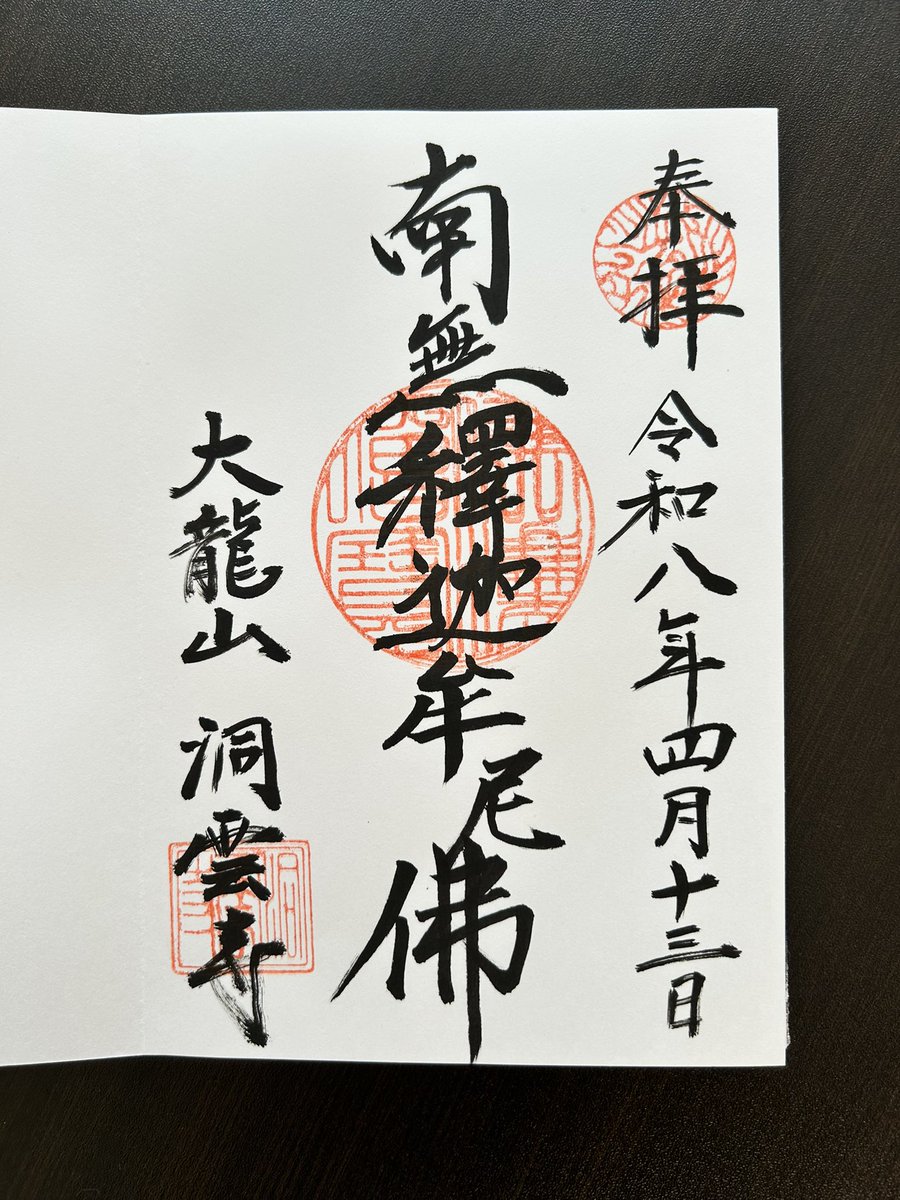 奉拝 令和八年四月十三日
南無釋迦牟尼佛
大龍山 洞雲寺